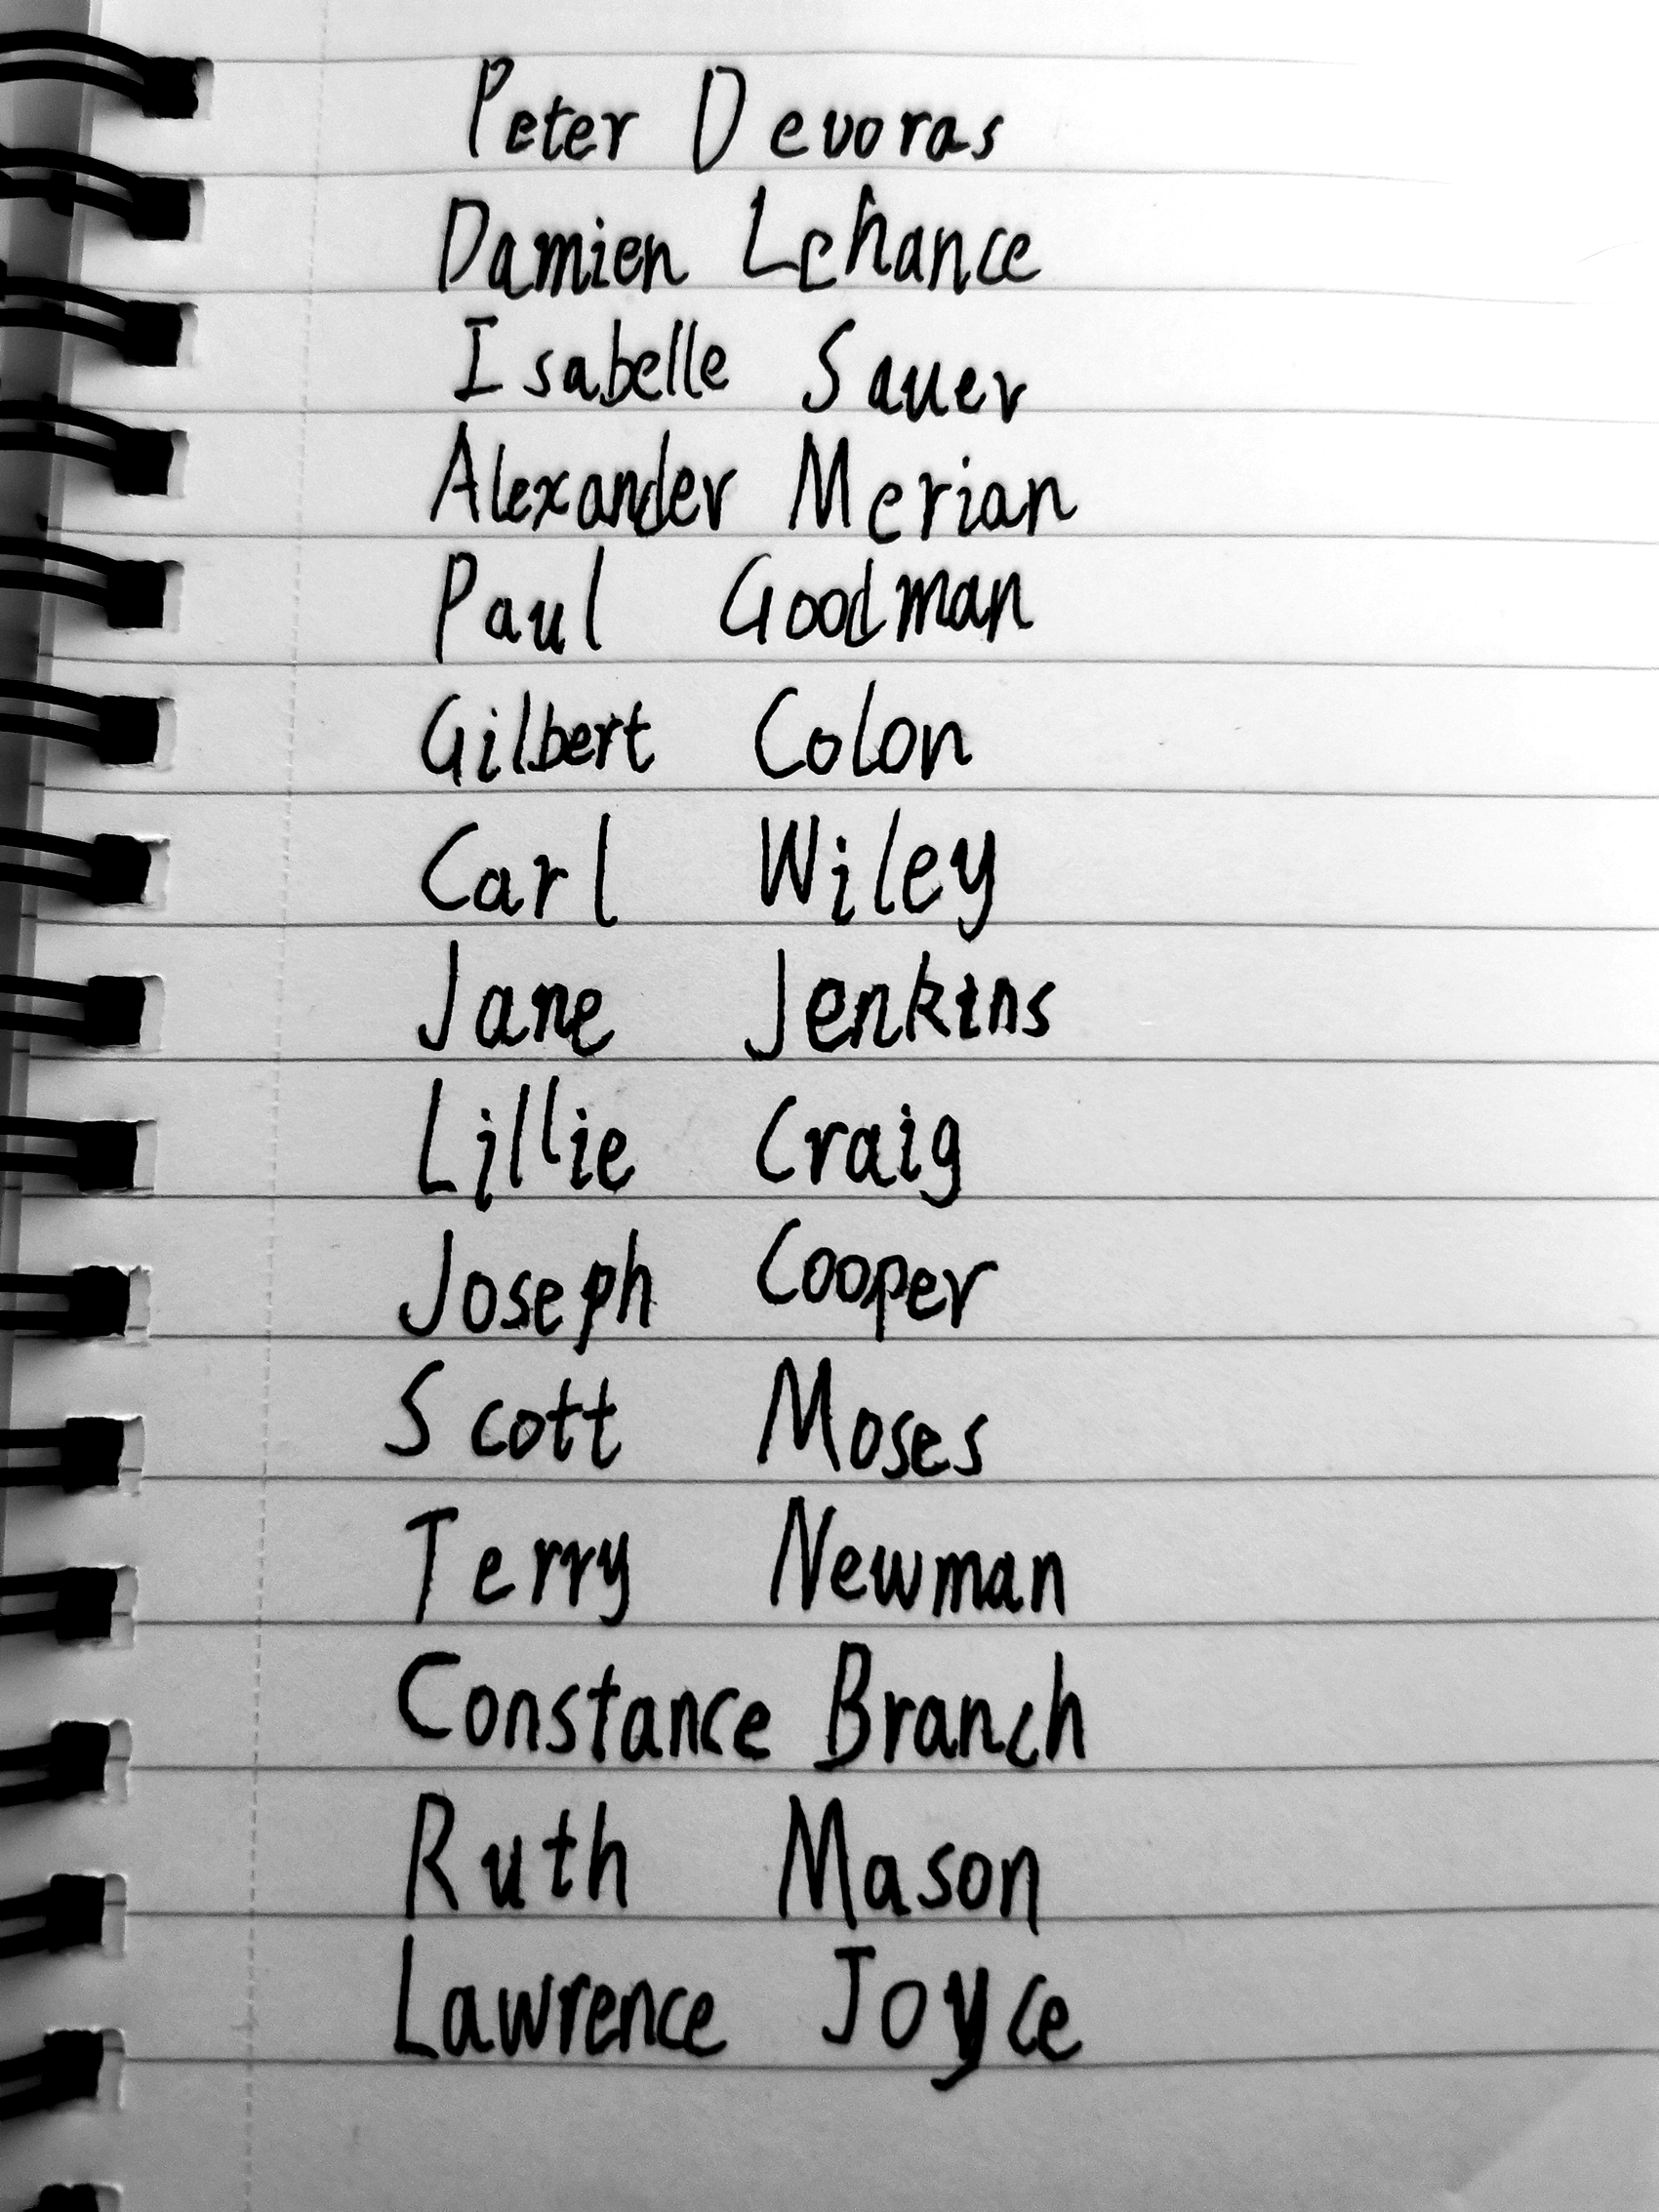 Peter Devoras
Damien Lchance
Isabelle Sauer
Alexander Merian
Paul Goodman
Gilbert Colon
Carl Wiley
Jane Jenkins
Lillie Craig
Joseph Cooper
Scott Moses
Terry Newman
Constance Branch
Ruth Mason
Lawrence Joyce